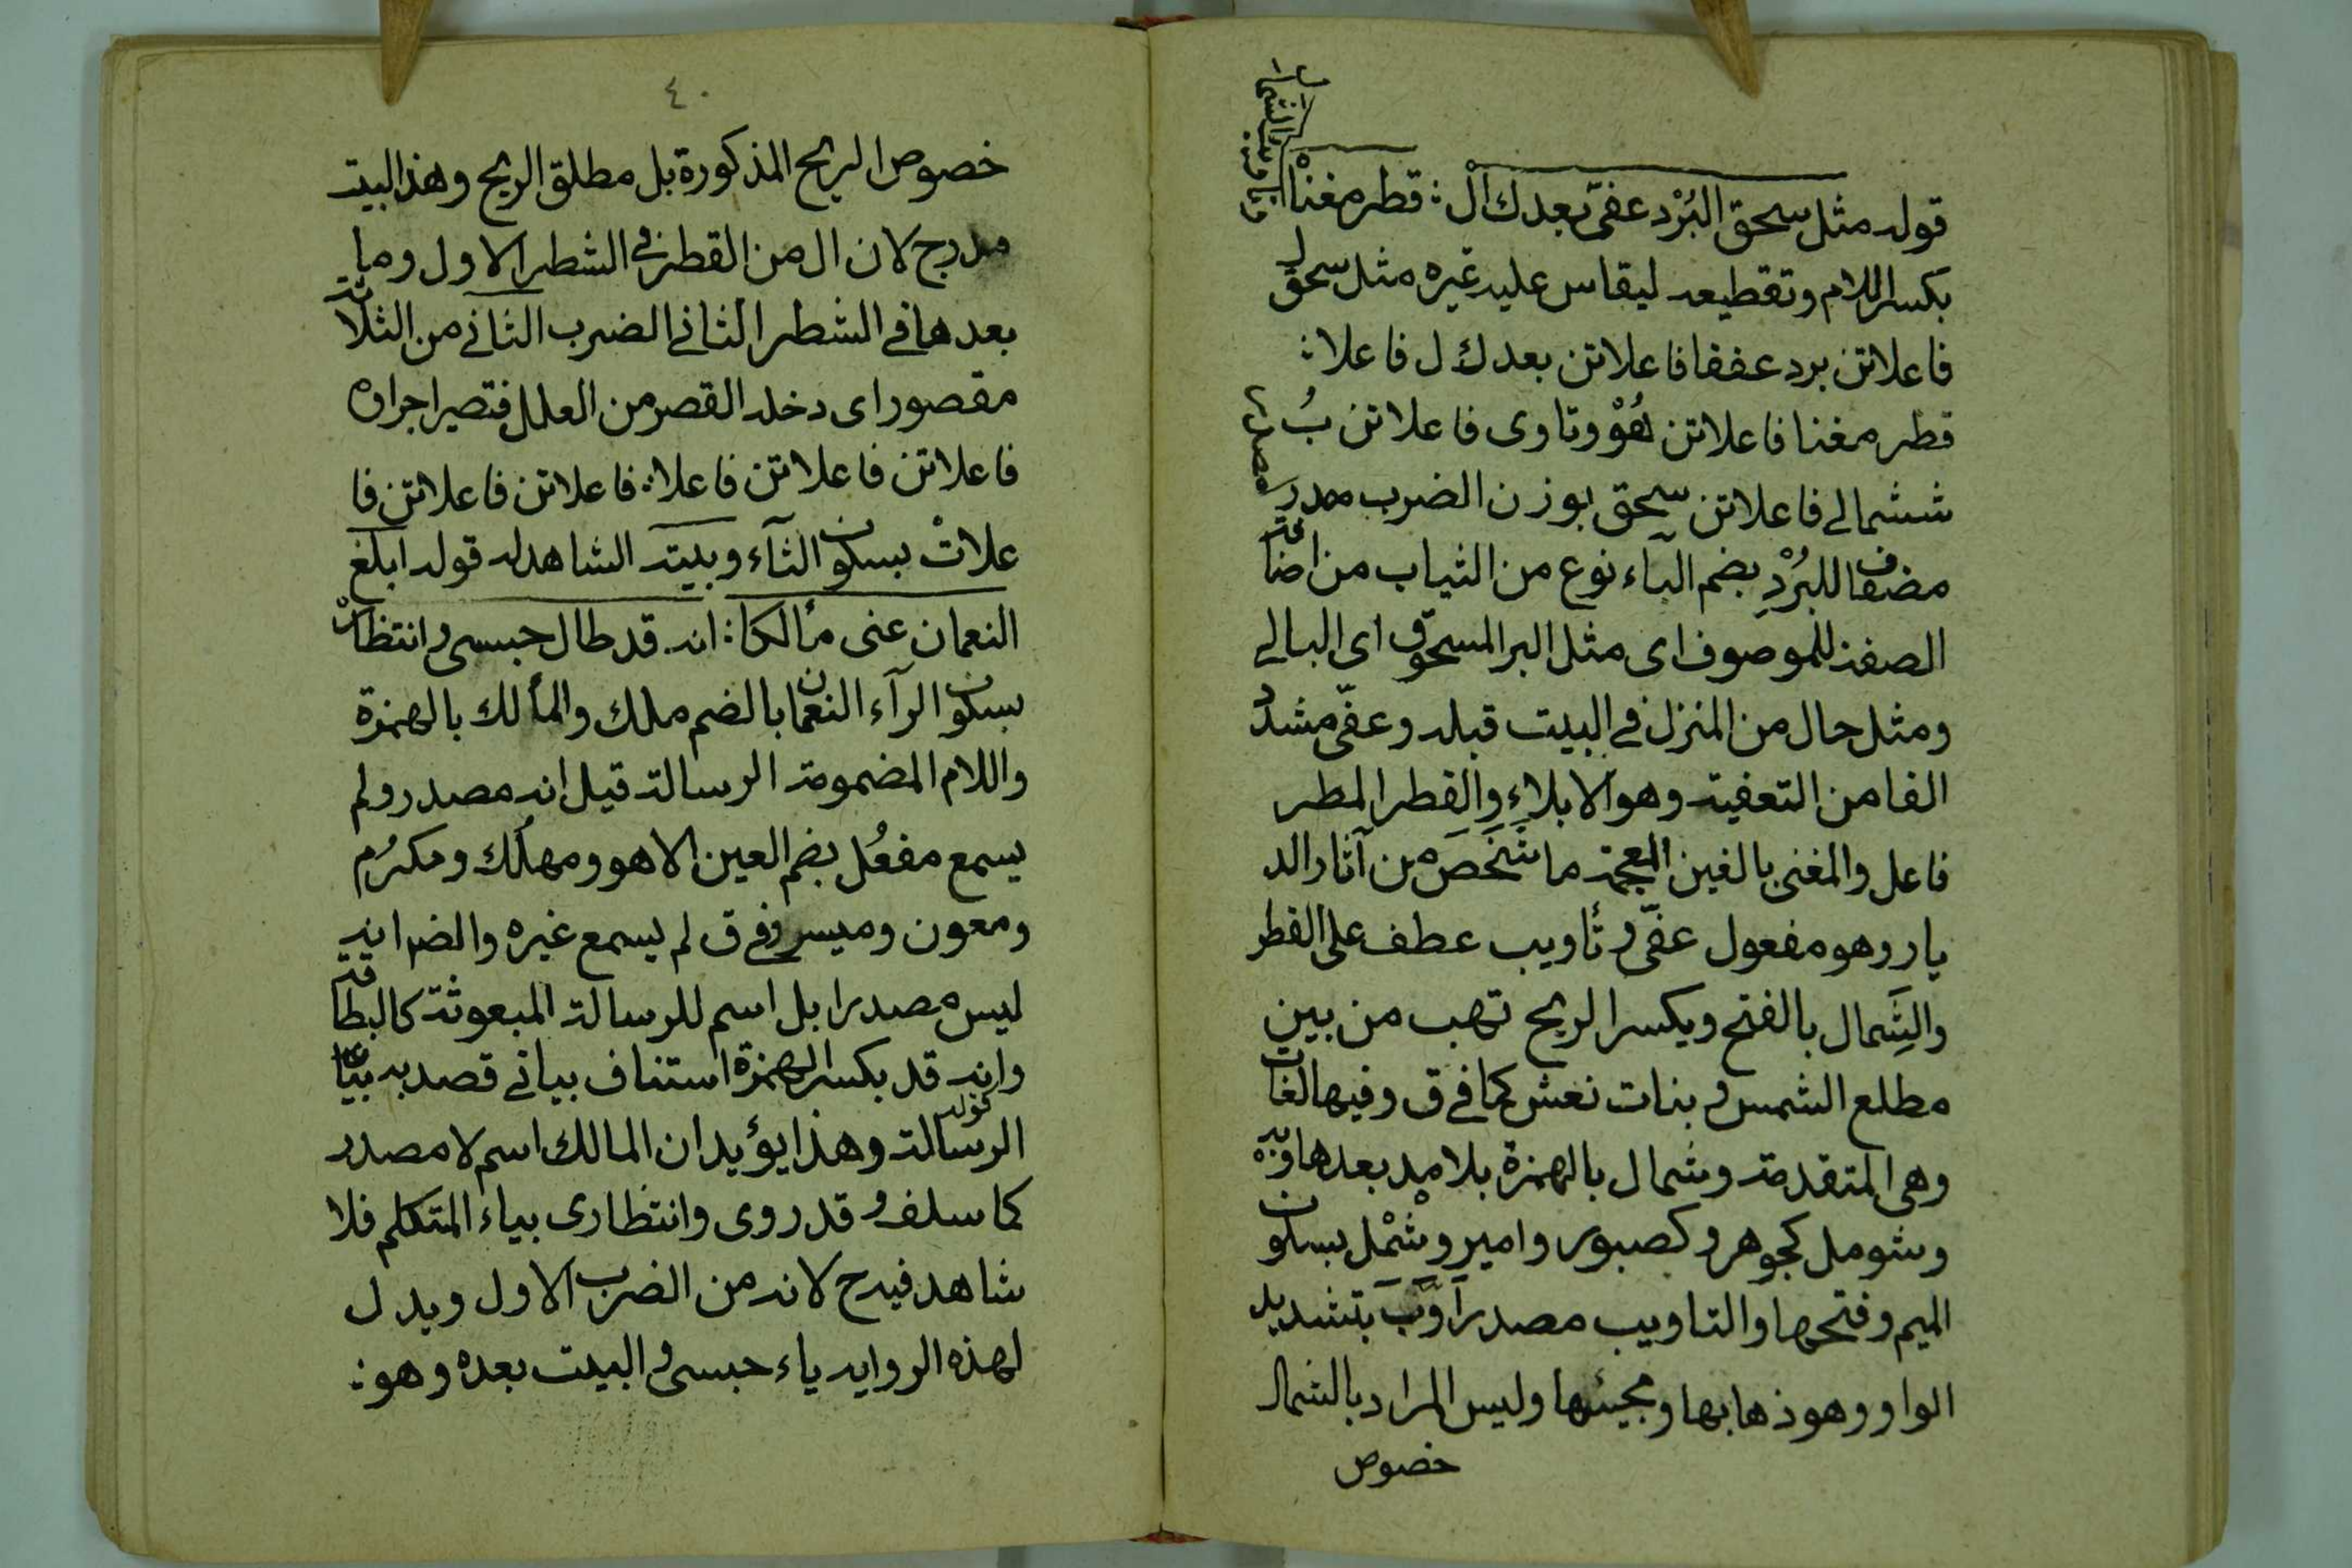 قوله مثل سحق البُرْد عفىّ بعدك الْ ⁝ قطر مغناهُ وتأويب الشمال
بكسر اللام وتقطيعه ليقاس عليه غيره مثل سحق لـ
فاعلاتن برد عففا فاعلاتن بعدك ل فاعلا ⁝
قطر مغنا فاعلاتن هُوْ وتاوى فاعلاتن بُ
ششمالى فاعلاتن سحق بوزن الضرب مصدر
مضاف للبُرْدِ بضم الباء نوع من الثياب من اضافة
الصفة للموصوف اى مثل البرد المسحوق اى البالى
ومثل حال من المنزل فى البيت قبله وعفّى مشدد
الفا من التعفية وهو الابلاءِ والقطر المطر
فاعل والمغنى بالغين المعجمة ما شَخَصَ من آثار الد
يار وهو مفعول عفّى وتأويب عطف على القطر
والشِمال بالفتح ويكسر الريح تهب من بين
مطلع الشمس وبنات نعش كما فى ق وفيها لغات
وهى المتقدمة وشمال بالهمزة بلا مد بعدها وبه
وشومل كجوهر وكصبور وامير وشمْل بسكون
الميم وفتحها والتاويب مصدر آوَّبَ بتشديد
الواو وهو ذهابها ومجيئها وليس المراد بالشمال
خصوص
٤٠
خصوص الريح المذكورة بل مطلق الريح وهذا البيت
مدرج لان ال من القطر فى الشطر الاول وما
بعدها فى الشطر الثانى الضرب الثانى من الثلاثة
مقصور اى دخله القصر من العلل فتصير اجزاؤه
فاعلاتن فاعلاتن فاعلا ⁝ فاعلاتن فاعلاتن فا
علاتْ بسكون التآء وبيته الشاهد له قوله ابلغ
النعمان عنى مألكا ⁝ انه قد طال حبسى وانتظارْ
بسكون الرآء النعمان بالضم ملك والمألك بالهمزة
واللام المضمومة الرسالة قيل انه مصدر ولم
يسمع مفعُل بضم العين الا هو ومهلُك ومكرُم
ومعون وميسر وفى ق لم يسمع غيره والضم انه
ليس مصدرا بل اسم للرسالة المبعوثة كالبطاقة
وانه قد بكسر الهمزة استئناف بيانى قصد به بيان
الرسالة قوله وهذا يؤيد ان المالك اسم لا مصدر
كما سلف وقد روى وانتظارى بياء المتكلم فلا
شاهد فيه ح لانه من الضرب الاول ويدل
لهذه الرواية ياء حبسى والبيت بعده وهو ⁝